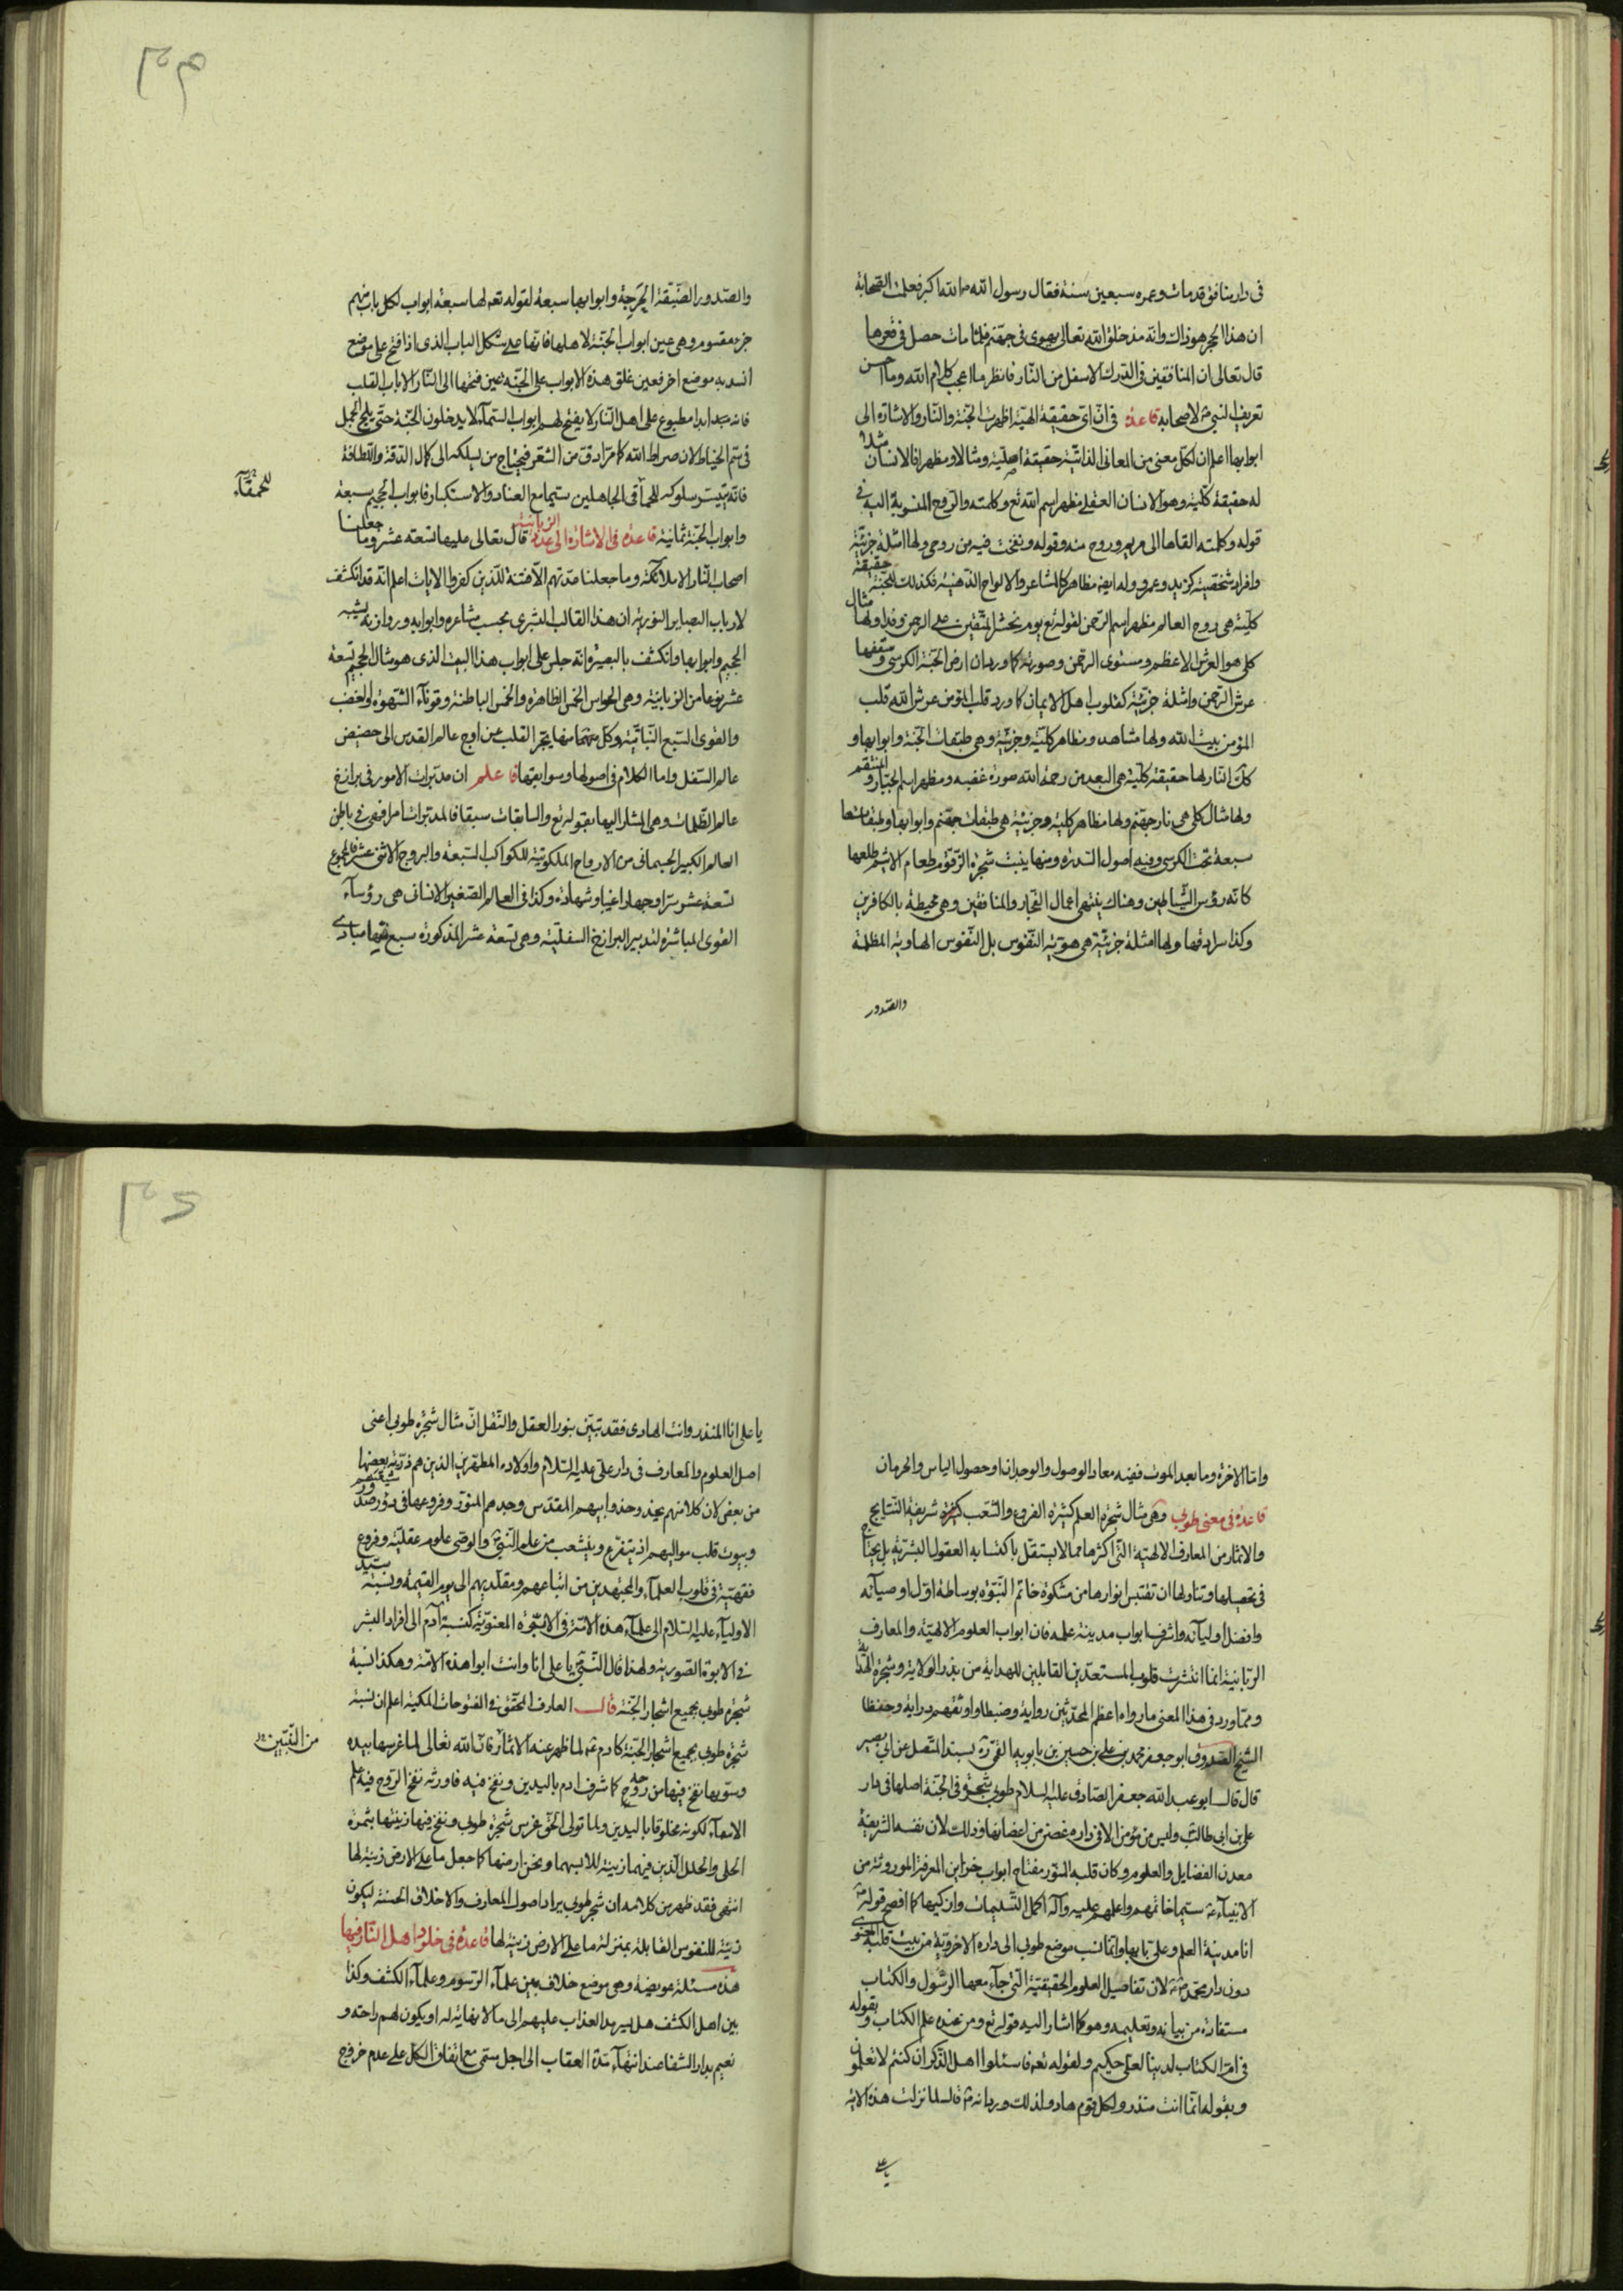 فی دار منافق قد مات وعمره سبعین سنة فقال رسول الله ص الله اکبر فعلمت الصحابة
ان هذا الحجر هو ذاك وانه مذ خلق الله تعالی یهوی فی جهنم فلما مات حصل فی قعرها
قال تعالی ان المنافقین فی الدرك الاسفل من النار فانظر ما اعجب کلام الله وما احسن
تعریف النبی ص لاصحابه قاعدة فی ان ای حقیقة الهیة اظهرت الجنة والنار والاشارة الی
ابوابها اعلم ان لکل معنی من المعانی الذاتیة حقیقة اصلیة ومثالا ومظهرا فالانسان مثلا
له حقیقة کلیة وهو الانسان العقلی مظهر اسم الله تع وکلمته والروح المنسوبة الیه فی
قوله وکلمته القاها الی مریم وروح منه وقوله ونفخت فیه من روحی ولها امثلة جزئیة
وافراد شخصیة کزید وعمرو وله ایضا مظاهر کالمشاعر والالواح الذهنیة فکذلك للجنة حقیقة
کلیة هی روح العالم مظهر اسم الرحمن لقوله تع یوم نحشر المتقین الی الرحمن وفدا ولها مثال
کلی هو العرش الاعظم ومستوی الرحمن وصورته کما ورد ان ارض الجنة الکرسی وسقفها
عرش الرحمن وامثلة جزئیة کقلوب اهل الایمان کما ورد قلب المؤمن عرش الله قلب
المؤمن بیت الله ولها مشاهد ومظاهر کلیة وجزئیة وهی طبقات الجنة وابوابها و
کذا النار لها حقیقة کلیة هی البعد من رحمة الله صورة غضبه ومظهر اسم الجبار والمنتقم
ولها مثال کلی هی نار جهنم ولها مظاهر کلیة وجزئیة هی طبقات جهنم وابوابها وطبقاتها
سبعة تحت الکرسی وفیه اصول السدرة ومنها ینبت شجرة الزقوم طعام الاثیم طلعها
کانه رؤس الشیاطین وهناك ینتهی اعمال الفجار والمنافقین وهی محیطة بالکافرین
وکذا سرادقها ولها امثلة جزئیة هی هویة النفوس بل النفوس الهاویة المظلمة
والصدور
والصدور الضیقة الحرجة وابوابها سبعة لقوله تعه لها سبعة ابواب لکل باب منهم
جزء مقسوم وهی عین ابواب الجنة لاهلها فانها علی شکل الباب الذی اذا فتح علی موضع
انسد به موضع اخر فعین غلق هذه الابواب علی الجنة عین فتحها الی النار الا باب القلب
فانه ابدا مطبوع علی اهل النار لا یفتح لهم ابواب السماء لا یدخلون الجنة حتی یلج الجمل
فی سم الخیاط لان صراط الله کما مر ادق من الشعر فیحتاج من یسلکه الی کمال الدقة واللطافة
فانه یتیسر سلوکه للحمآقی الجاهلین سیما مع العناد والاستکبار فابواب الجحیم سبعة
للحمقاء
وابواب الجنة ثمانیة قاعدة فی الاشارة الی عدد الزبانیة قال تعالی علیها تسعة عشر وما جعلنا
اصحاب النار الا ملائکة وما جعلنا عدتهم الا فتنة للذین کفروا الایات اعلم انه قد انکشف
لارباب البصایر النوریة ان هذا القالب البشری بحسب مشاعره وابوابه وروازنه یشبه
الجحیم وابوابها وانکشف بالبصیرة انه جلس علی ابواب هذا البیت الذی هو مثال الجحیم تسعة
عشر نوعا من الزبانیة وهی الحواس الخمس الظاهرة والخمس الباطنة وقوتاء الشهوة والغضب
والقوی السبع النباتیة وکل منها یجر القلب من اوج عالم القدس الی حضیض
عالم السفل واما الکلام فی اصولها وسوابقها فاعلم ان مدبرات الامور فی برازخ
عالم الظلمات وهی المشار الیها بقوله تع والسابقات سبقا فالمدبرات امرا فهی فی باطن
العالم الکبیر الجسمانی من الارواح الملکوتیة للکواکب السبعة والبروج الاثنی عشر فالمجموع
تسعة عشر سرا وجهارا غیبا وشهادة وکذا فی العالم الصغیر الانسانی هی رؤساء
القوی المباشرة لتدبیر البرازخ السفلیة وهی تسعة عشر المذکورة سبع منها مبادی
واما الاخرة وما بعد الموت ففیه معاد الوصول والوجدان او حصول الیاس والحرمان
قاعدة فی معنی طوبی وهی مثال شجرة العلم کثیرة الفروع والشعب کثیرة شریفة النتایج
والاثمار من المعارف الالهیة التی اکثرها مما لا یستقل باکتسابه العقول البشریة بل یحتاج
فی تحصیلها وتناولها ان تقتبس انوارها من مشکوة خاتم النبوة بوساطة اول اوصیائه
وافضل اولیائه واشرف ابواب مدینة علمه فان ابواب العلوم الالهیة والمعارف
الربانیة انما انتشرت قلوب المستعدین القابلین للهدایة من بذر الولایة وشجرة الهدایة
ومما ورد فی هذا المعنی ما رواه اعظم المحدثین روایة وضبطا واوثقهم درایة وحفظا
الشیخ الصدوق ابو جعفر محمد بن علی بن حسین بن بابویه القمی ره بسنده المتصل عن ابی بصیر
قال قال ابو عبد الله جعفر الصادق علیه السلام طوبی شجرة فی الجنة اصلها فی دار
علی بن ابی طالب ولیس من مؤمن الا فی داره غصن من اغصانها وذلك لان نفسه الشریفة
معدن الفضایل والعلوم وکان قلبه المنور مفتاح ابواب خزاین المعرفة الموروثة من
الانبیاء ع سیما خاتمهم واعلمهم علیه وآله اکمل التسلیمات وازکیها کما افصح قوله ص
انا مدینة العلم وعلی بابها وانما نسب موضع طوبی الی داره الاخرویة من بیت قلبه المعنوی
دون دار محمد ص لان تفاصیل العلوم الحقیقیة التی جاء معها الرسول والکتاب
مستفادة من بیانه وتعلیمه وهو کما اشار الیه قوله تع ومن عنده علم الکتاب وبقوله
فی ام الکتاب لدینا لعلی حکیم ولقوله تعه فاسئلوا اهل الذکر ان کنتم لا تعلمون
وبقوله انما انت منذر ولکل قوم هاد ولذلك ورد انه ص قال لما نزلت هذه الایة
یا علی
یا علی انا المنذر وانت الهادی فقد تبین بنور العقل والنقل ان مثال شجرة طوبی اعنی
اصل العلوم والمعارف فی دار علی علیه السلام واولاده المطهرین الذین هم ذریة بعضها
من بعض لان کلا منهم یحذو حذو ابیهم المقدس وجدهم المنور وفروعها فی صدور شیعتهم
وبیوت قلب موالیهم اذ یتفرع وینشعب من علم النبی ص والوصی علوم عقلیة وفروع
فقهیة فی قلوب العلماء والمجتهدین من اتباعهم ومقلدیهم الی یوم القیمة ونسبة سید
الاولیاء علیه السلام الی علماء هذه الامة فی الابوة المعنویة کنسبة آدم الی افراد البشر
فی الابوة الصوریة ولهذا قال النبی ص یا علی انا وانت ابوا هذه الامة وهکذا نسبة
شجرة طوبی بجمیع اشجار الجنة قال العارف المحقق فی الفتوحات المکیة اعلم ان نسبة
شجرة طوبی بجمیع اشجار الجنة کادم ع لما ظهر عنه الاثمار فان الله تعالی لما غرسها بیده
من النبیین
وسویها نفخ فیها من روحه کما شرف ادم بالیدین ونفخ فیه فاورثه نفخ الروح فیه علم
الاسماء لکونه مخلوقا بالیدین ولما تولی الحق غرس شجرة طوبی ونفخ فیها زینتها بثمرة
الحلی والحلل الذین فیهما زینة للابسهما ونحن ارضها کما جعل ما علی الارض زینة لها
انتهی فقد ظهر من کلامه ان شجر طوبی یراد اصول المعارف والاخلاق الحسنة لیکون
زینة للنفوس القابلة بمنزلة ما علی الارض زینة لها قاعدة فی خلود اهل النار فیها
هذه مسئلة عویصة وهی موضع خلاف بین علماء الرسوم وعلماء الکشف وکذا
بین اهل الکشف هل یسرمد العذاب علیهم الی ما لا نهایة له او یکون لهم راحة و
نعیم بدار الشقا عند انتهاء مدة العقاب الی اجل مسمی مع اتفاق الکل علی عدم خروج